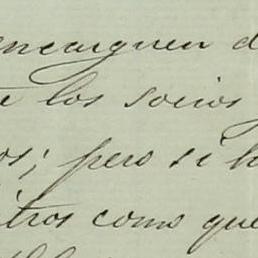 encarguen d
los socios
os; pero si h
itros como que